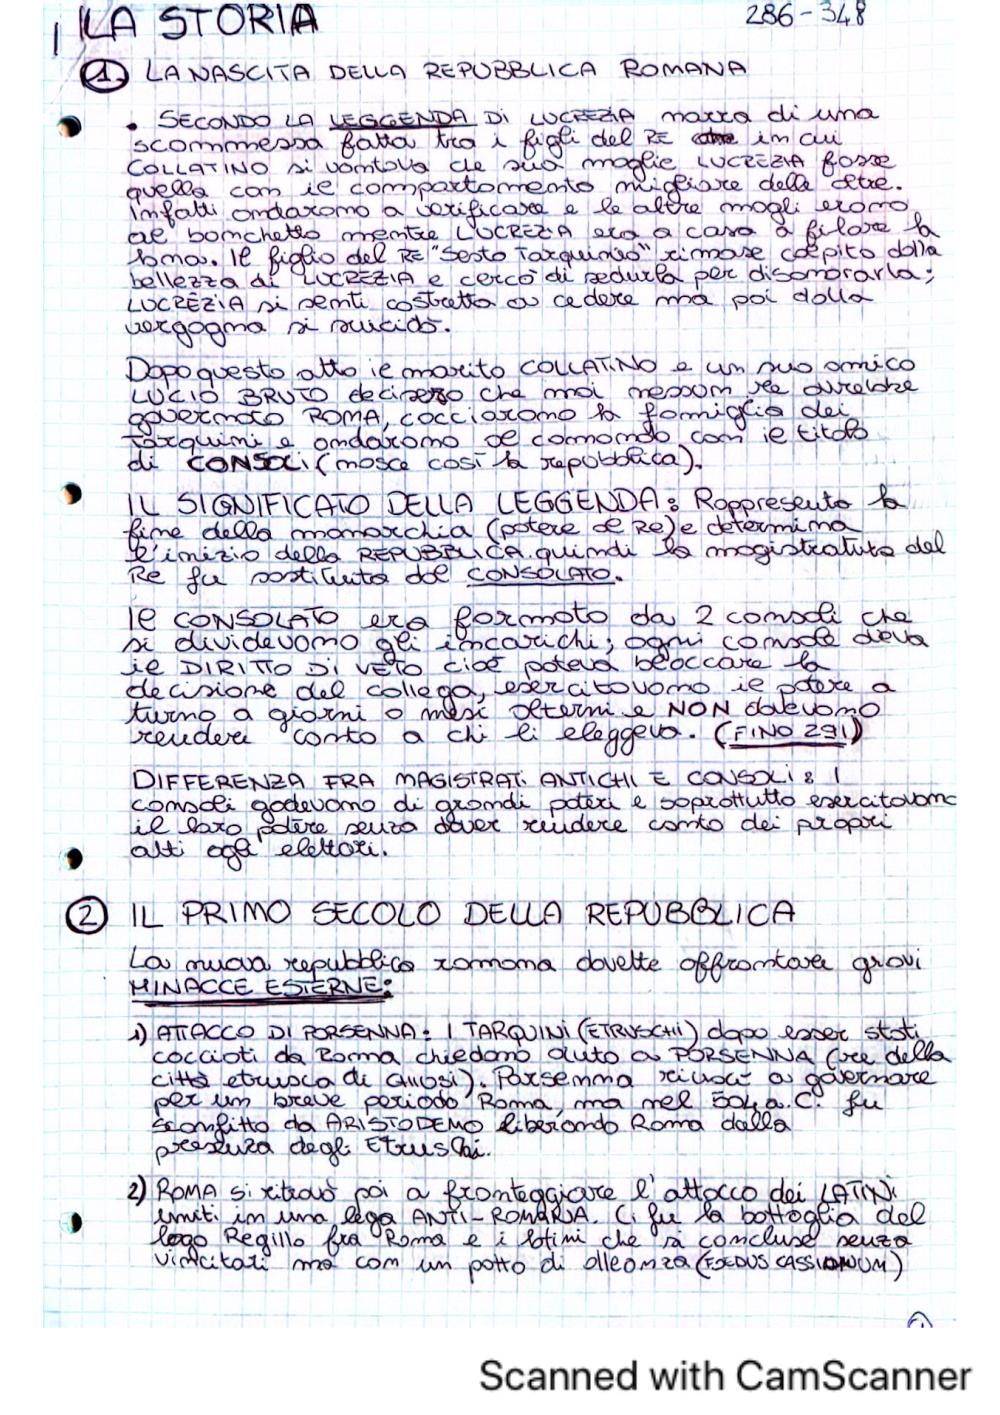 LA STORIA
286-348
1 LA NASCITA DELLA REPUBBLICA ROMANA
• SECONDO LA LEGGENDA DI LUCREZIA narra di una
scommessa fatta tra i figli del RE in cui
COLLATINO si vantava che sua moglie LUCREZIA fosse
quella con il comportamento migliore delle altre.
Infatti andarono a verificare e le altre mogli erano
al banchetto mentre LUCREZIA era a casa a filare la
lana. Il figlio del RE "Sesto Tarquinio" rimase colpito dalla
bellezza di LUCREZIA e cercò di sedurla per disonorarla;
LUCREZIA si sentì costretta a cedere ma poi dalla
vergogna si suicidò.
Dopo questo atto il marito COLLATINO e un suo amico
LUCIO BRUTO decisero che mai nessun re avrebbe
governato ROMA, cacciarono la famiglia dei
Tarquini e andarono al comando con il titolo
di CONSOLI (nasce così la repubblica).
IL SIGNIFICATO DELLA LEGGENDA: Rappresenta la
fine della monarchia (potere al Re) e determina
l'inizio della REPUBBLICA quindi la magistratura del
Re fu sostituita dal CONSOLATO.
Il CONSOLATO era formato da 2 consoli che
si dividevano gli incarichi; ogni console aveva
il DIRITTO DI VETO cioè poteva bloccare la
decisione del collega, esercitavano il potere a
turno a giorni o mesi alterni e NON dovevano
rendere conto a chi li eleggeva. (FINO 291)
DIFFERENZA FRA MAGISTRATI ANTICHI E CONSOLI: I
consoli godevano di grandi poteri e soprattutto esercitavano
il loro potere senza dover rendere conto dei propri
atti agli elettori.
2 IL PRIMO SECOLO DELLA REPUBBLICA
La nuova repubblica romana dovette affrontare gravi
MINACCE ESTERNE:
1) ATTACCO DI PORSENNA: I TARQUINI (ETRUSCHI) dopo esser stati
cacciati da Roma chiedono aiuto a PORSENNA (re della
città etrusca di CHIUSI). Porsenna riuscì a governare
per un breve periodo Roma, ma nel 504 a.C. fu
sconfitto da ARISTODEMO liberando Roma dalla
presenza degli Etruschi.
2) ROMA si ritrovò poi a fronteggiare l'attacco dei LATINI
uniti in una lega ANTI-ROMANA. Ci fu la battaglia del
lago Regillo fra Roma e i latini che si concluse senza
vincitori ma con un patto di alleanza (FOEDUS CASSIANUM)
Scanned with CamScanner